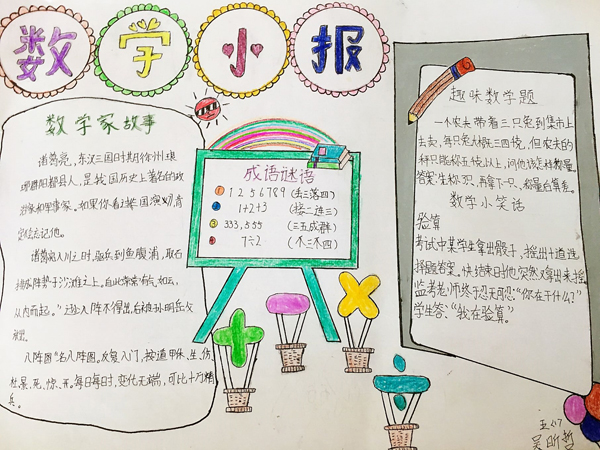 数学小报
数学家故事
诸葛亮，东汉三国时期徐州琅
琊阳都县人，是我国历史上著名的政
治家和军事家。如果你看过《三国演义》，肯
定会忘记他。
诸葛亮入川之时，驱兵到鱼腹浦，取石
排成阵势于沙滩之上，自此常常有气如云，
从内而起。"
八阵图"名八阵图，反复八门，按遁甲休、生、伤、
杜、景、死、惊、开。每日每时，变化无端，可比十万精
兵。
成语谜语
① 1 2 5 6 7 8 9 (丢三落四)
② 1+2+3 (接二连三)
③ 333,555 (三五成群)
④ 7÷2 (不三不四)
趣味数学题
一个农夫带着三只兔到集市上
去卖，每只兔大概三四千克，但农夫的
秤只能称五千克以上，问他该怎样称量。
答案：先称3只，再拿下一只，称量后算差。
数学小笑话
验算
考试中某学生拿出骰子，摇出十道选
择题答案，快结束时他突然又拿出来摇
监考老师终于忍无可忍："你在干什么？"
学生答："我在验算。"
五(7)
吴昕哲